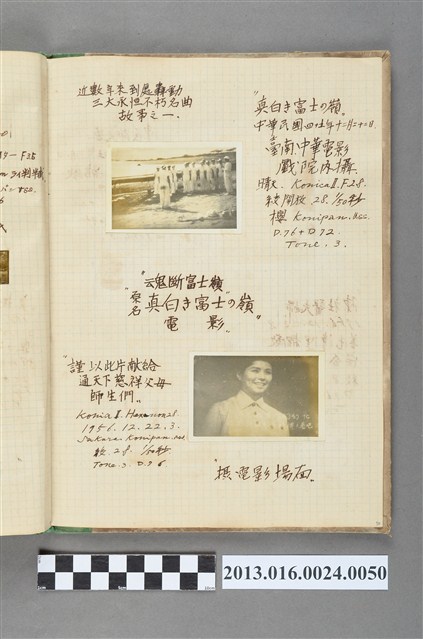 近數年來到處轟動
三大永恒不朽名曲
故事之一.
"真白き富士の嶺"
中華民國四十五年十二月二十二日
臺南中華電影
戲院內攝
晴. Konica Ⅱ. F.28.
軟開放 28. 1/50秒
櫻 Konipan. sss.
D.76 + D.72
Tone. 3.
"魂斷富士嶺"
原名 "真白き富士の嶺"
電影
"謹以此片献給
通天下慈祥父母
師生們"
Konica Ⅱ. Hexanon 28.
1956. 12. 22. 3.
Sakura. Konipan. sss.
軟. 28. 1/50秒
Tone. 3. D.76
"攝電影場面"
2013.016.0024.0050